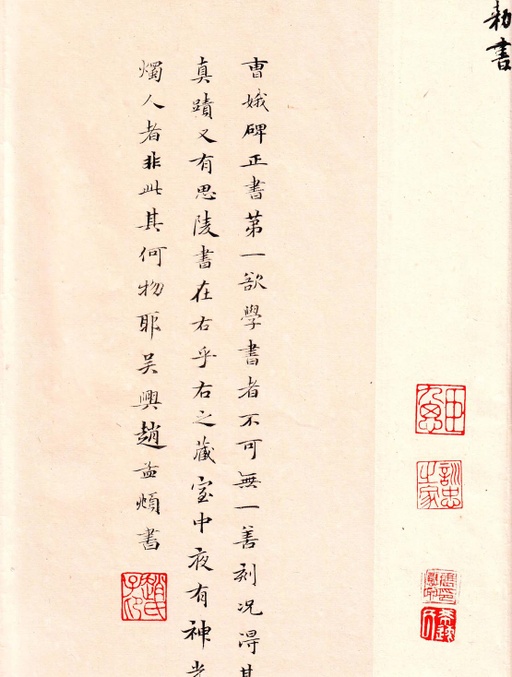 勑書
曹娥碑正書第一欲學書者不可無一善刻況得其
真蹟又有思陵書在右乎右之藏室中夜有神光
燭人者非此其何物耶吴興趙孟頫書
趙氏子昂
訓忠之家